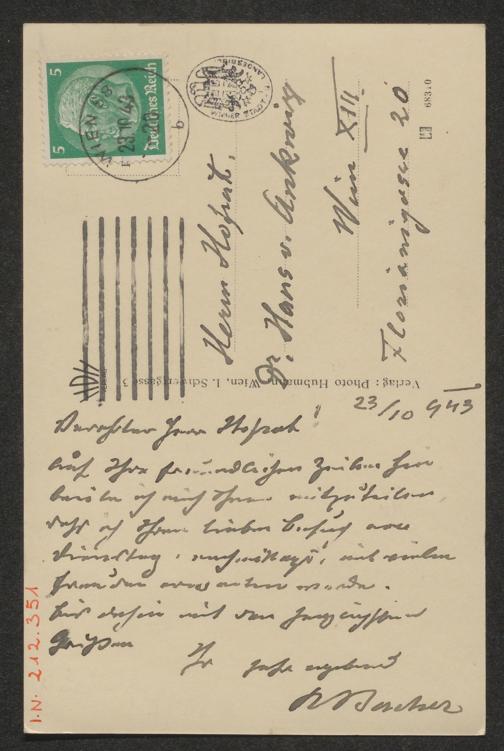 5 5
Deutsches Reich
WIEN 68
23.10.43
b
Herrn Hofrat
Dr. Hans v. Ankwicz
Wien XIII
Floriangasse 20
68340
Verlag: Photo Hubmann, Wien, I. Schwertgasse 3
23/10 943
Verehrter Herr Hofrat!
Auf Ihre freundlichen Zeilen hin
beeile ich mich Ihnen mitzuteilen,
daß ich Ihren lieben Besuch am
Dienstag, nachmittags, mit vielen
Freuden erwarten werde.
Bis dahin mit den
Grüßen
Ihr sehr ergebener
I.N. 212.351